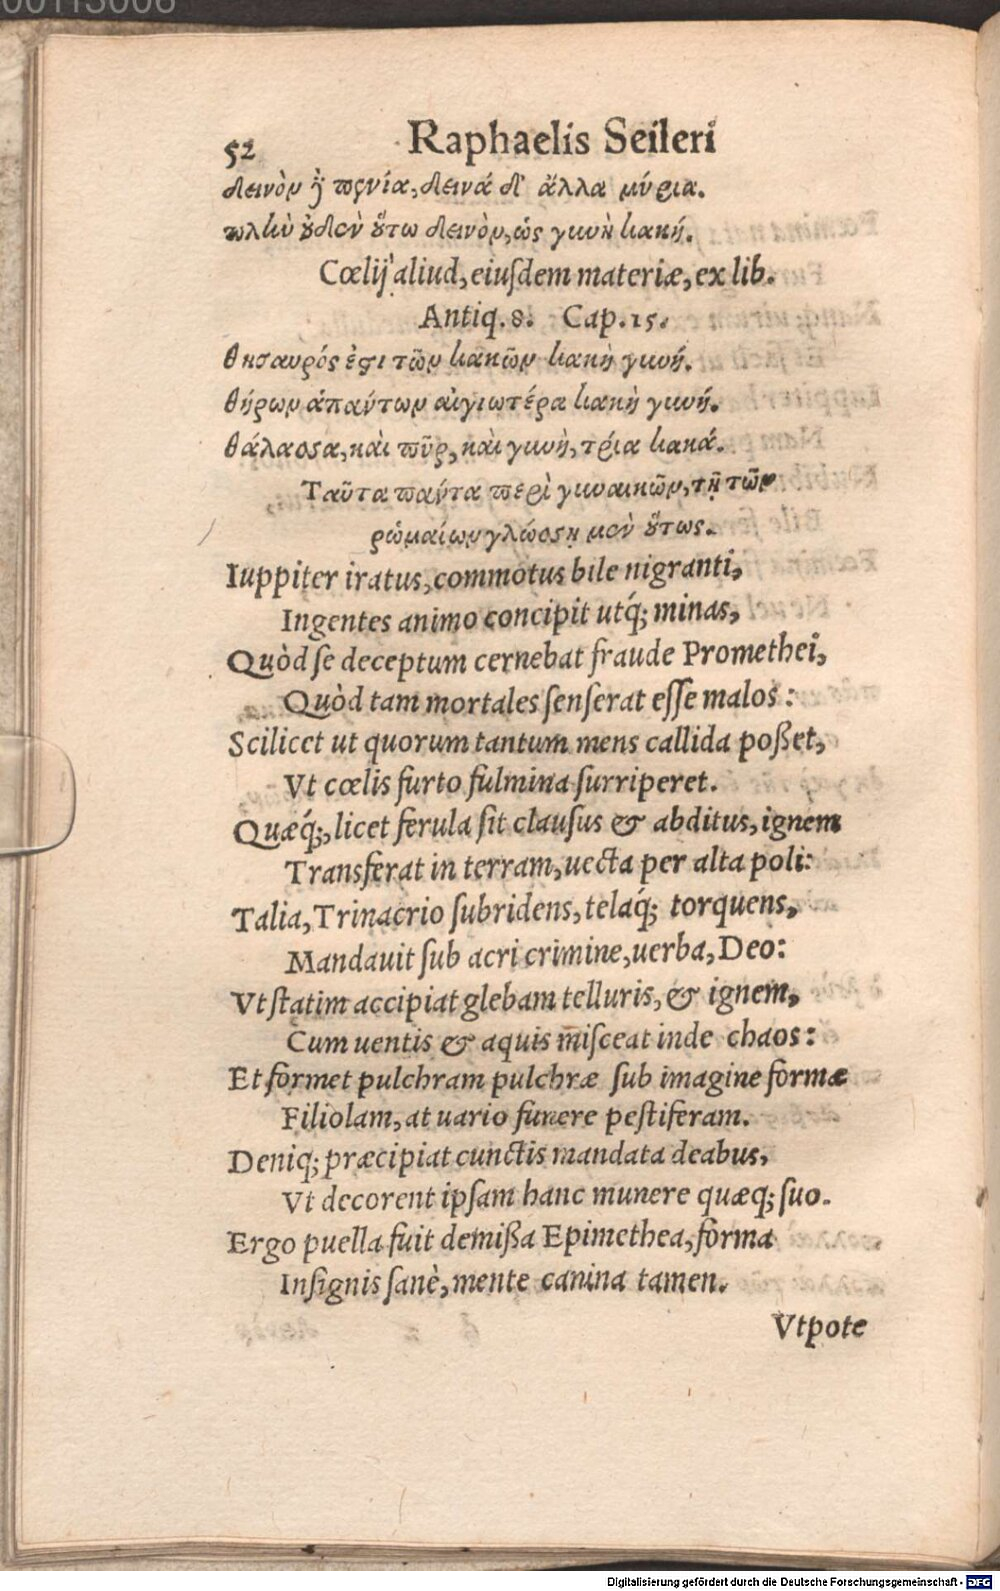 52 Raphaelis Seileri
δεινὸν ἢ πενία, δεινά δ' ἄλλα μύρια.
πλὴν οὐδὲν οὕτω δεινὸν, ὡς γυνὴ κακή.
Cœlij aliud, eiuſdem materiæ, ex lib.
Antiq. 8. Cap. 15.
θησαυρός ἐστι τῶν κακῶν κακὴ γυνή.
θήρων ἁπάντων αἰγιωτέρα κακὴ γυνή.
θάλασσα, καὶ πῦρ, καὶ γυνὴ, τρία κακά.
Ταῦτα πάντα περὶ γυναικῶν, τῇ τῶν
ῥωμαίων γλώσσῃ μὲν οὕτως.
Iuppiter iratus, commotus bile nigranti,
Ingentes animo concipit utq́; minas,
Quòd ſe deceptum cernebat fraude Promethei,
Quòd tam mortales ſenſerat eſſe malos:
Scilicet ut quorum tantum mens callida poßet,
Vt cœlis furto fulmina ſurriperet.
Quæq́;, licet ferula ſit clauſus & abditus, ignem
Transferat in terram, uecta per alta poli:
Talia, Trinacrio ſubridens, telaq́; torquens,
Mandauit ſub acri crimine, uerba, Deo:
Vt ſtatim accipiat glebam telluris, & ignem,
Cum uentis & aquis miſceat inde chaos:
Et formet pulchram pulchræ ſub imagine formæ
Filiolam, at uario funere peſtiferam.
Deniq; præcipiat cunctis mandata deabus,
Vt decorent ipſam hanc munere quæq; ſuo.
Ergo puella fuit demißa Epimethea, forma
Inſignis ſanè, mente canina tamen.
Vtpote
Digitalisierung gefördert durch die Deutsche Forschungsgemeinschaft - DFG